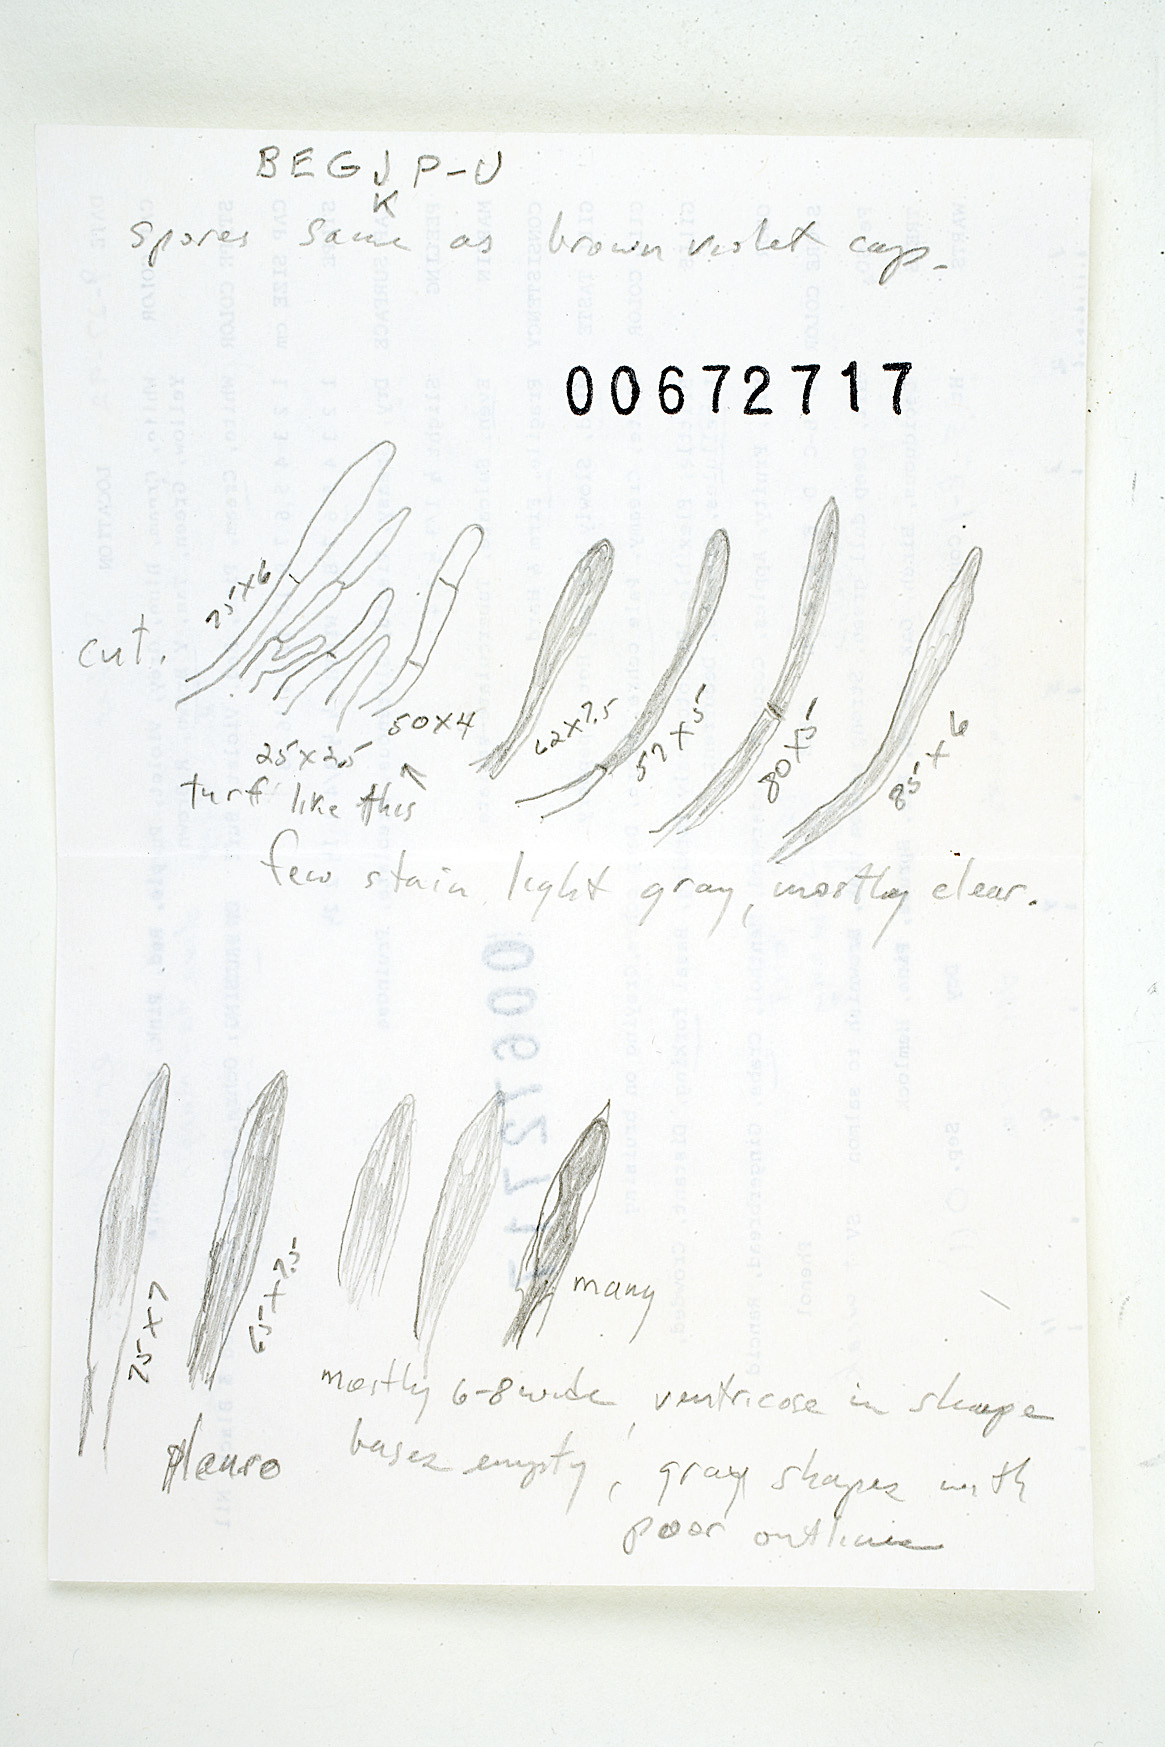 BEGJP-U
K
Spores same as brown violet cap.
00672717
75x6
cut.
50x4
25x2.5
turf like this
62x7.5
57x5
80x5
85x6
few stain light gray, mostly clear.
75x7
65x7.5
many
mostly 6-8 wide, ventricose in shape
pleuro
bases empty, gray shapes with
poor outline